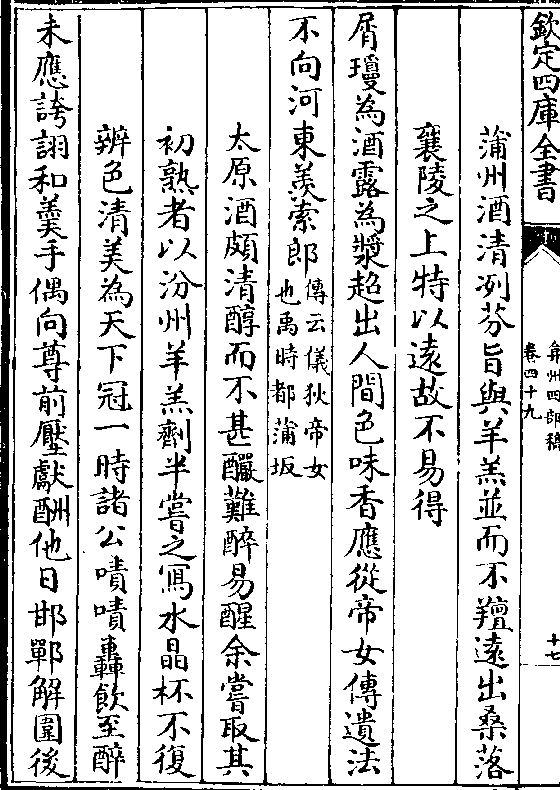 欽定四庫全書
弇州四部稿
卷四十九
十七
蒲州酒清冽芬旨與羊羔並而不羶遠出桑落
襄陵之上特以遠故不易得
屑瓊為酒露為漿超出人間色味香應從帝女傳遺法
不向河東羨索郎傳云儀狄帝女也禹時都蒲坂
太原酒頗清醇而不甚釅難醉易醒余嘗取其
初熟者以汾州羊羔劑半嘗之寫水晶杯不復
辨色清美為天下冠一時諸公嘖嘖轟飲至醉
未應誇詡和羹手偶向尊前壓獻酬他日邯鄲解圍後